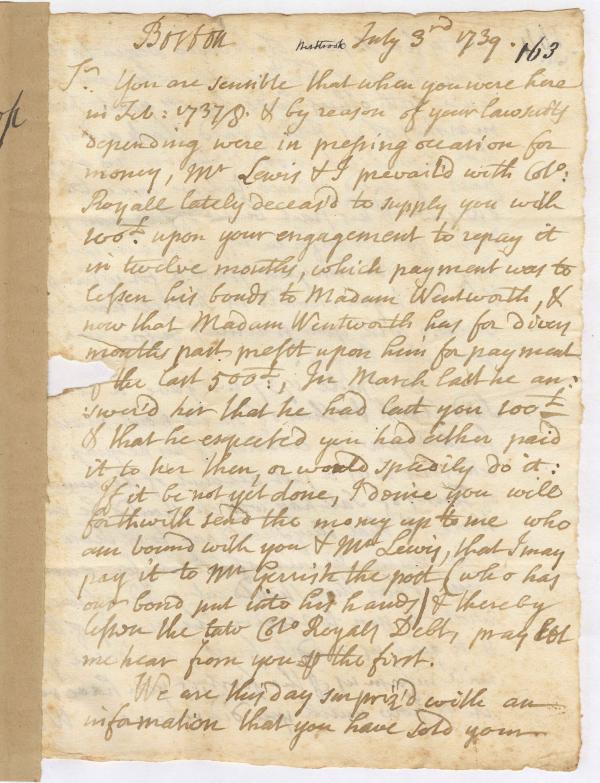 Boston Westbrook July 3rd 1739. 163
Sr. You are sensible that when you were here
in Feb: 1737/8. & by reason of your lawsuits
depending were in pressing occasion for
money, Mr Lewis & I prevail'd with Colo:
Royall lately deceas'd to supply you with
100£. upon your engagement to repay it
in twelve months, which payment was to
lessen his bonds to Madam Wentworth, &
now that Madam Wentworth has for divers
months past prest upon him for payment
of the last 500£, In March last he an=
swer'd her that he had lent you 100£
& that he expected you had either paid
it to her then, or would speedily do it:
If it be not yet done, I desire you will
forthwith send the money up to me who
am bound with you & Mr Lewis, that I may
pay it to Mr Gerrish the post (who has
our bond put into his hands) & thereby
lessen the late Colo Royals Debt, pray let
me hear from you by the first.
We are this day surpriz'd with an
information that you have sold your